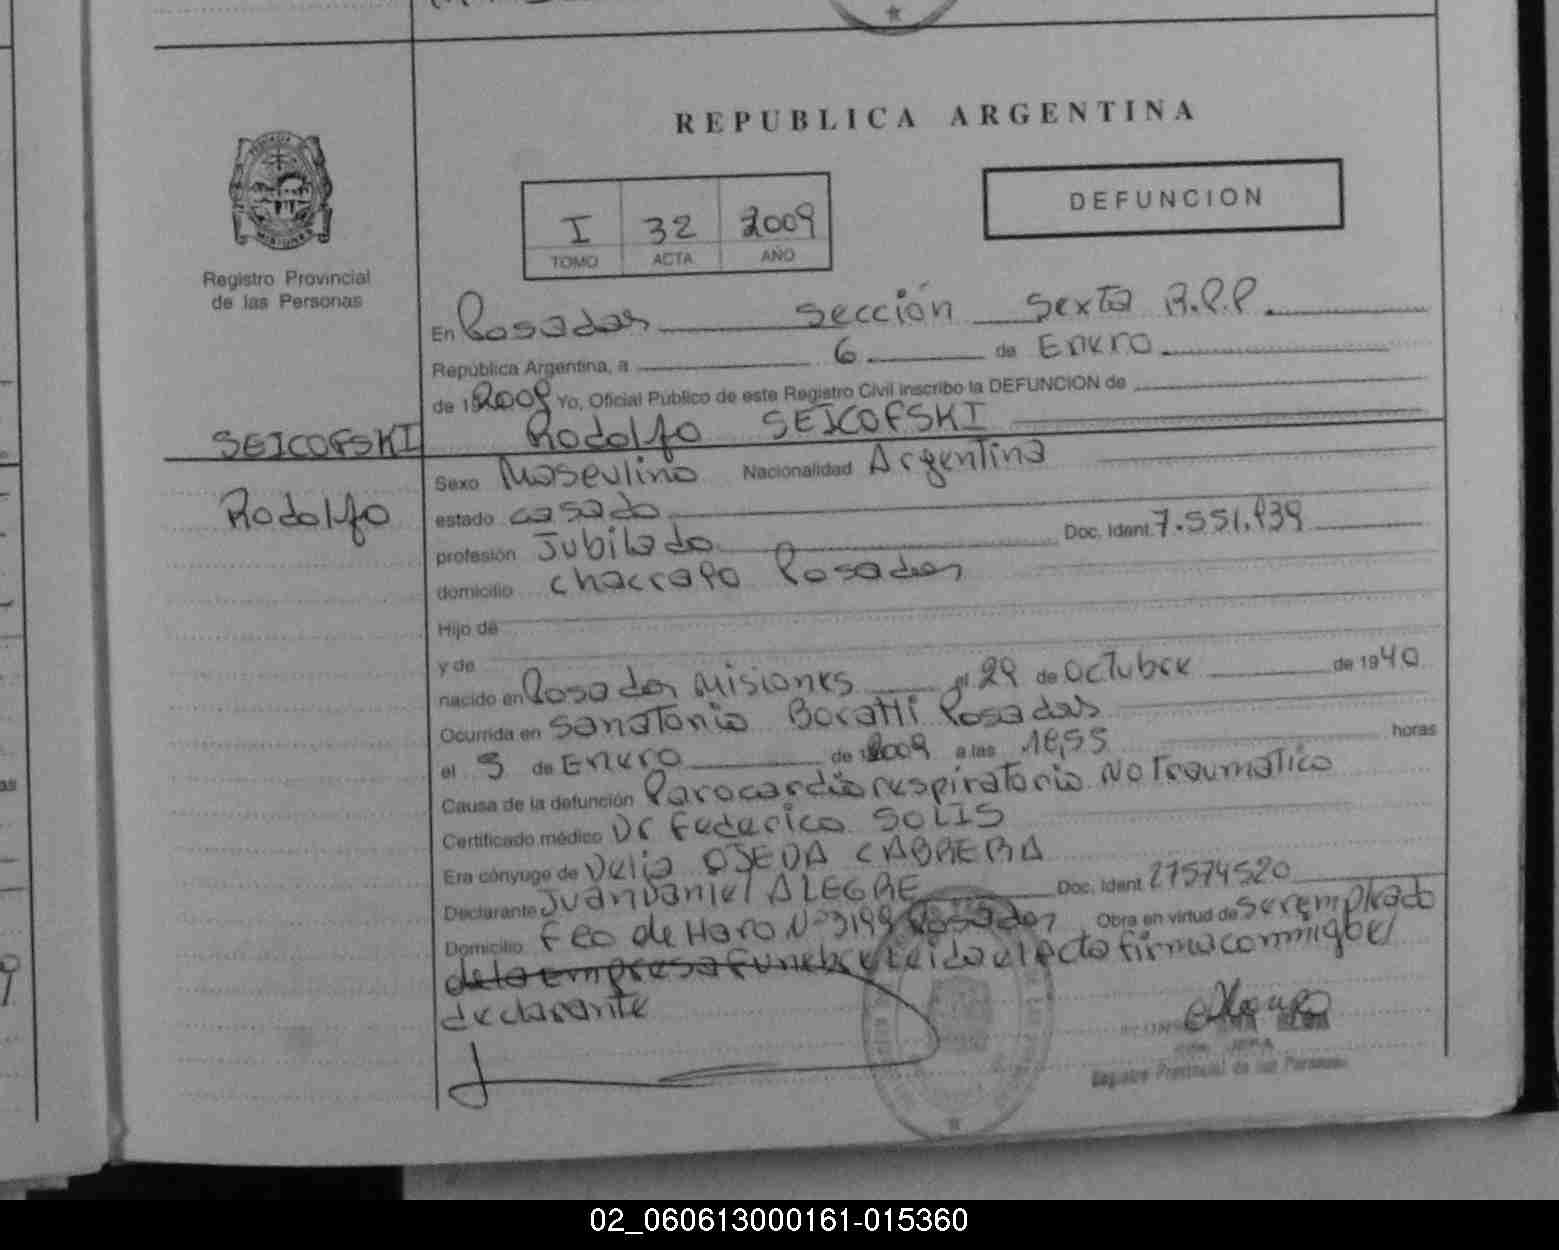 REPUBLICA ARGENTINA
PROVINCIA
MISIONES
Registro Provincial
de las Personas
I 32 2009
TOMO ACTA AÑO
DEFUNCION
En Posadas sección sexta R.P.P.
República Argentina, a 6 de Enero
de 19 2009 Yo, Oficial Público de este Registro Civil inscribo la DEFUNCION de
SEICOFSKI Rodolfo SEICOFSKI
Rodolfo
Sexo Masculino Nacionalidad Argentina
estado casado
profesión Jubilado Doc. Ident. 7.551.939
domicilio chacra
Posadas
Hijo de
y de
nacido en Posadas Misiones el 29 de octubre de 1940
Ocurrida en Sanatorio Boratti Posadas
el 5 de Enero de 2009 a las horas
Causa de la defunción Parocardiorespiratorio No Traumatico
Certificado médico Dr Federico SOLIS
Era cónyuge de Delia OJEDA CABRERA
Declarante Juan Daniel ALEGRE Doc. Ident. 27574520
Domicilio Fco de Haro Nº 3199 Posadas Obra en virtud de ser empleado
de la empresa funebre Leida el acta firma conmigo el
declarante
Registro Provincial de las Personas
02_060613000161-015360